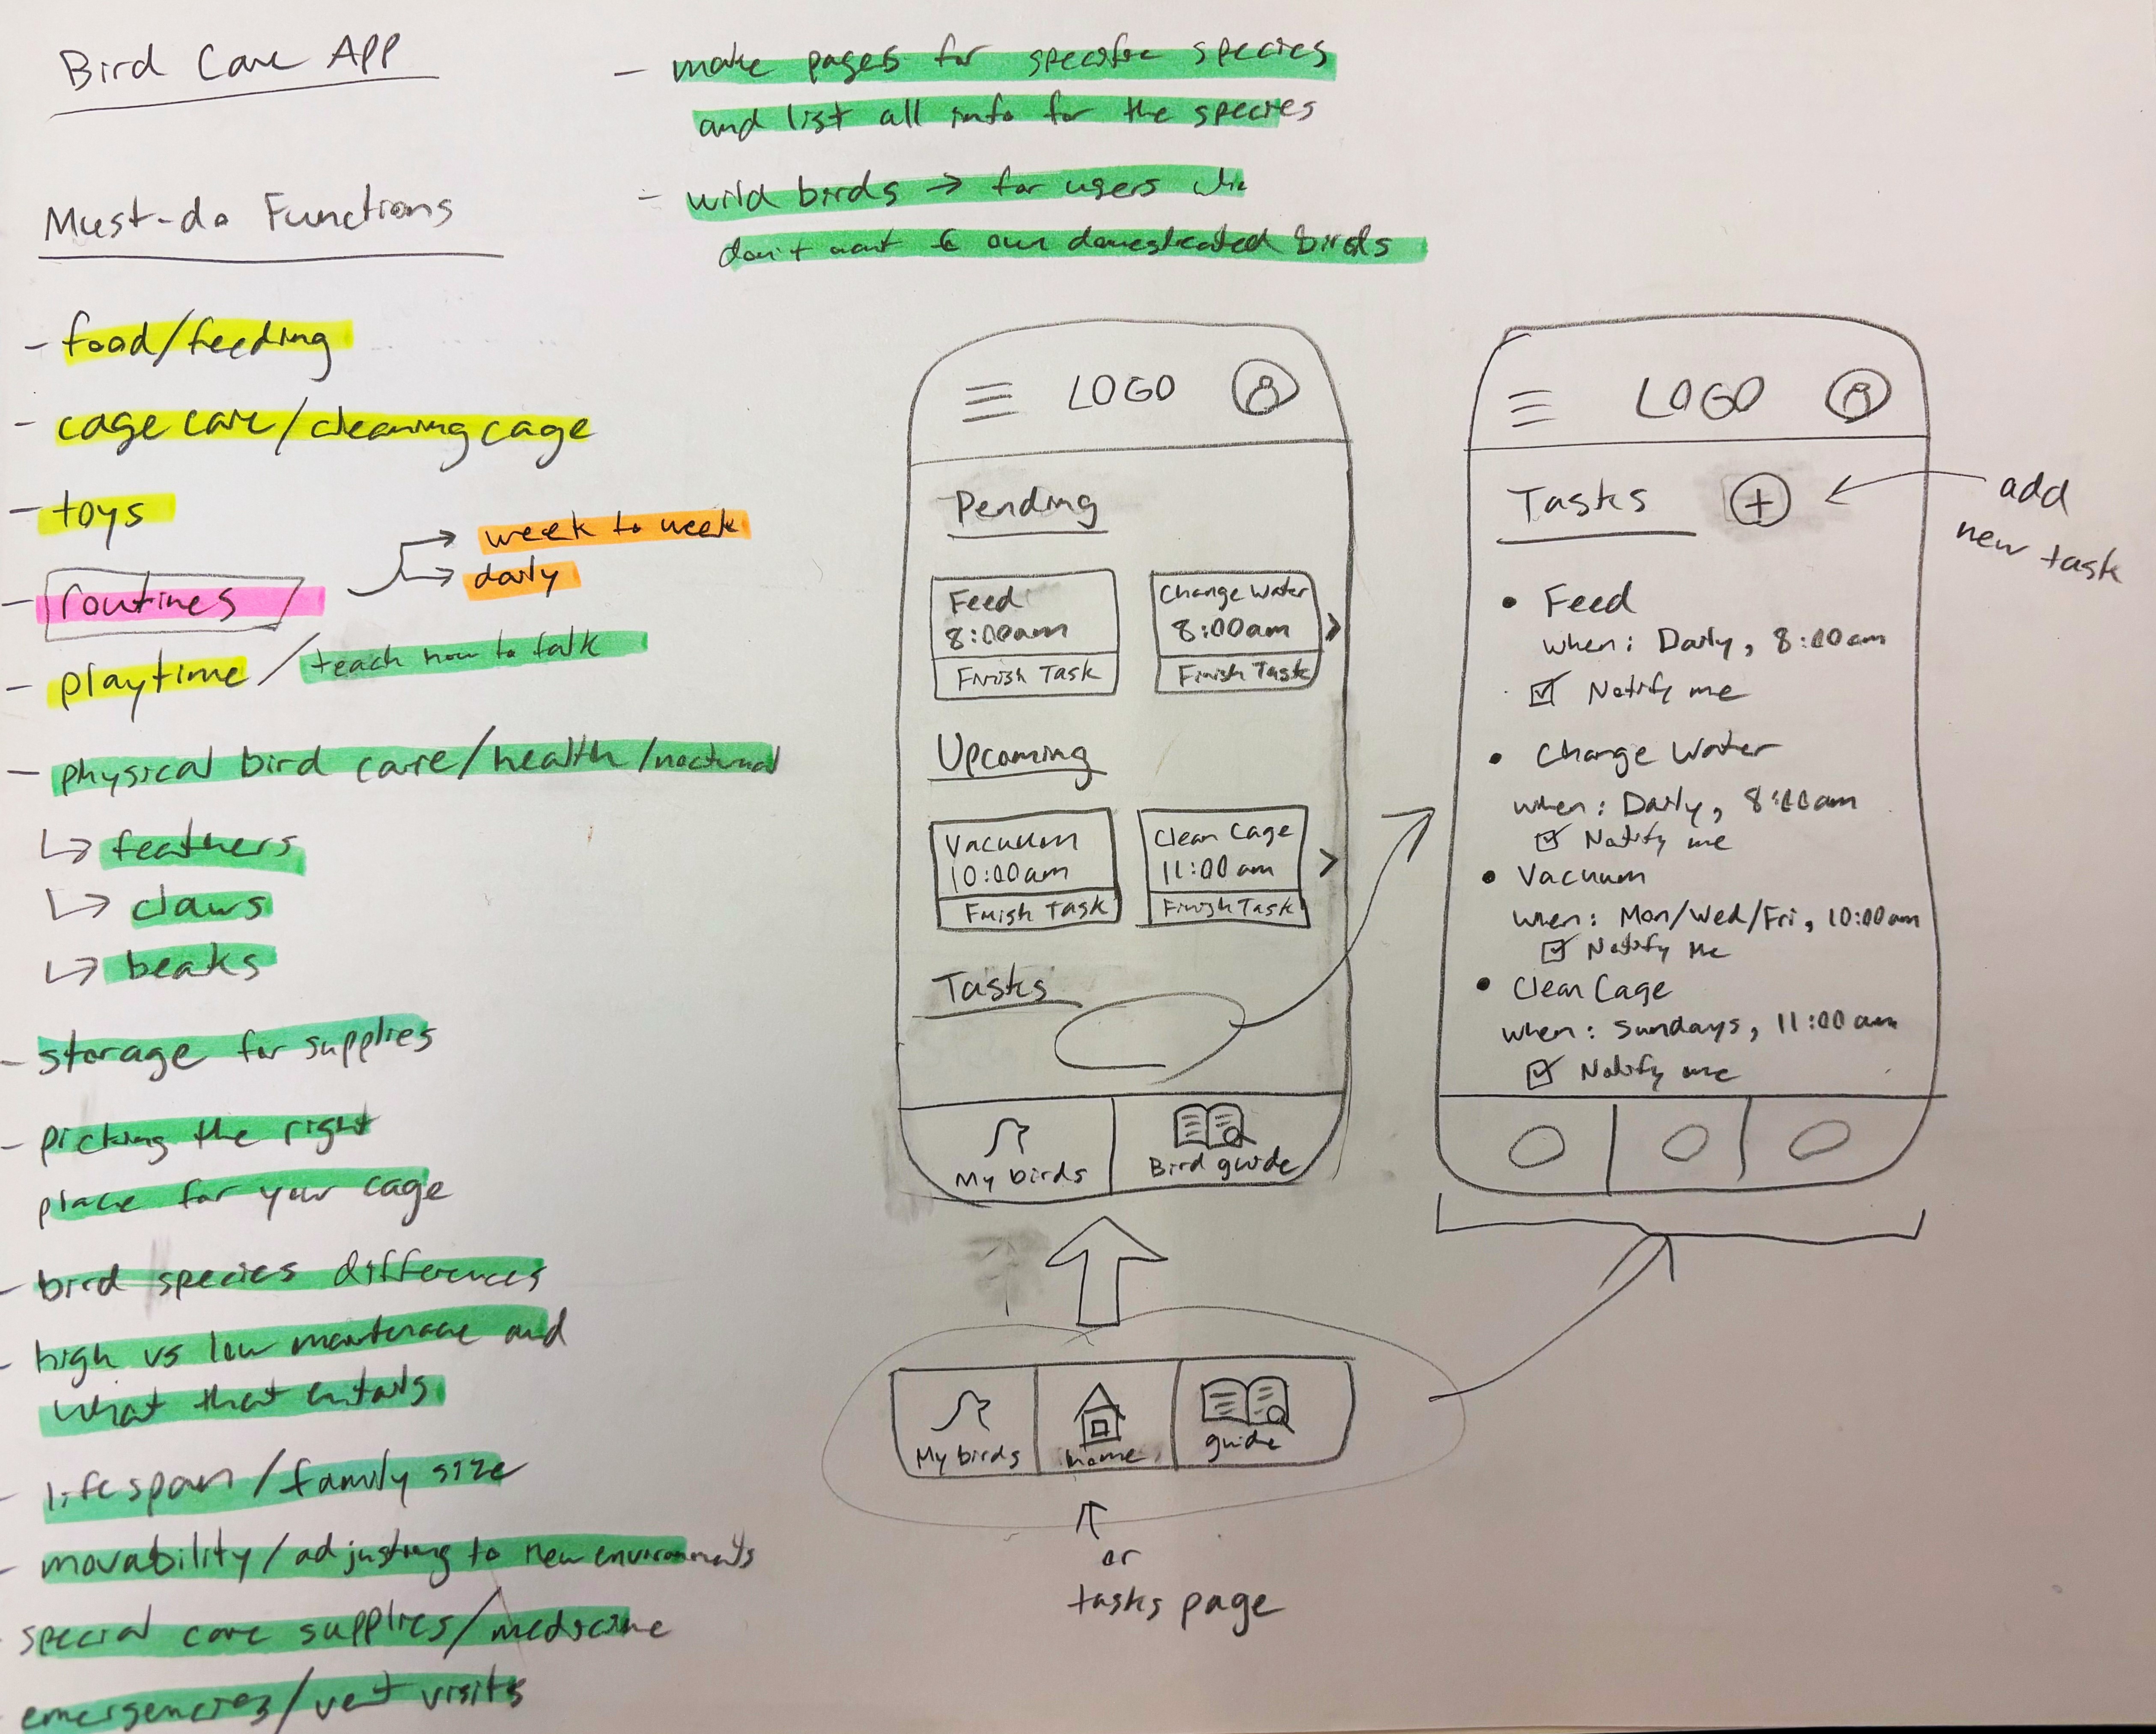 Bird Care App
Must-do Functions
- food/feeding
- cage care/cleaning cage
- toys
- routines
week to week
daily
- playtime / teach how to talk
- physical bird care/health/nocturnal
feathers
claws
beaks
- storage for supplies
- picking the right
place for your cage
- bird species differences
- high vs low maintenance and
what that entails
- lifespan/family size
- movability/adjusting to new environments
- special care supplies/medicine
- emergencies/vet visits
- make pages for specific species
and list all info for the species
- wild birds → for users who
don't want to own domesticated birds
LOGO
Pending
Feed
8:00am
Finish Task
Change Water
8:00am
Finish Task
>
Upcoming
Vacuum
10:00am
Finish Task
Clean Cage
11:00am
Finish Task
>
Tasks
My birds
Bird guide
My birds
home
guide
or
tasks page
LOGO
Tasks +
add
new task
• Feed
when: Daily, 8:00am
Notify me
• Change Water
when: Daily, 8:00am
Notify me
• Vacuum
when: Mon/Wed/Fri, 10:00am
Notify me
• Clean Cage
when: Sundays, 11:00am
Notify me